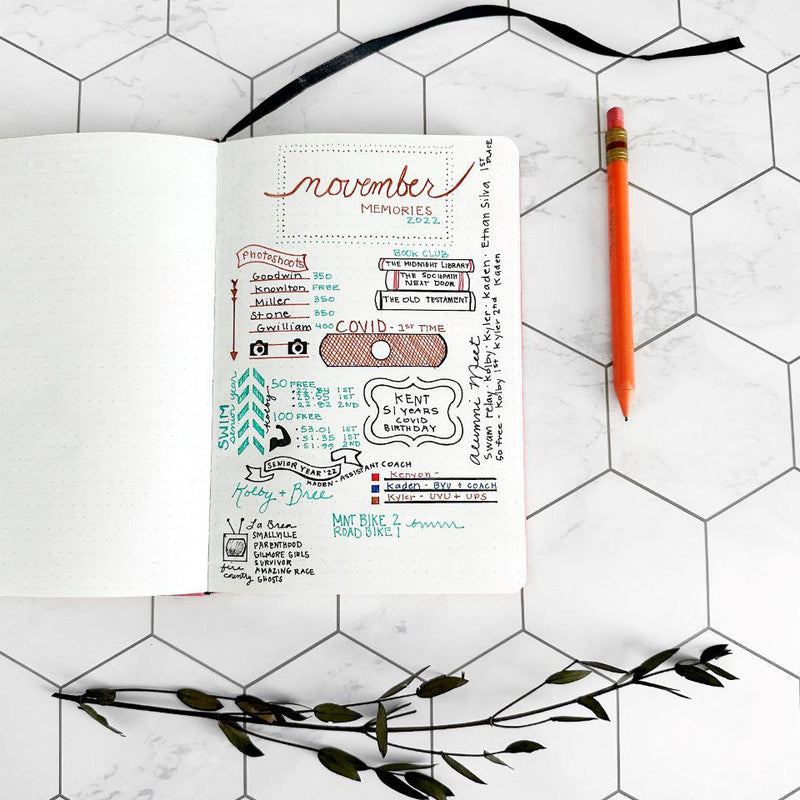 november
MEMORIES
2022
Photoshoots
Goodwin 350
Knowlton FREE
Miller 350
Stone 350
Gwilliam 400
BOOK CLUB
THE MIDNIGHT LIBRARY
THE SOCIOPATH
NEXT DOOR
THE OLD TESTAMENT
COVID - 1ST TIME
SWIM
senior year
Kolby
50 FREE
• 22.84 1ST
• 23.55 1ST
• 22.82 2ND
100 FREE
• 53.01 1ST
• 51.35 1ST
• 51.99 2ND
KENT
51 YEARS
COVID
BIRTHDAY
Alumni Meet
Swam relay · Kolby · Kyler · Kaden · Ethan Silva 1ST PLACE
50 free · Kolby 1st Kyler 2nd Kaden
SENIOR YEAR '22
KADEN - ASSISTANT COACH
Kolby + Bree
Kenyon -
Kaden - BYU + COACH
Kyler - UVU + UPS
MNT BIKE 2
ROAD BIKE 1
La Brea
SMALLVILLE
PARENTHOOD
GILMORE GIRLS
SURVIVOR
AMAZING RACE
GHOSTS
fire
country